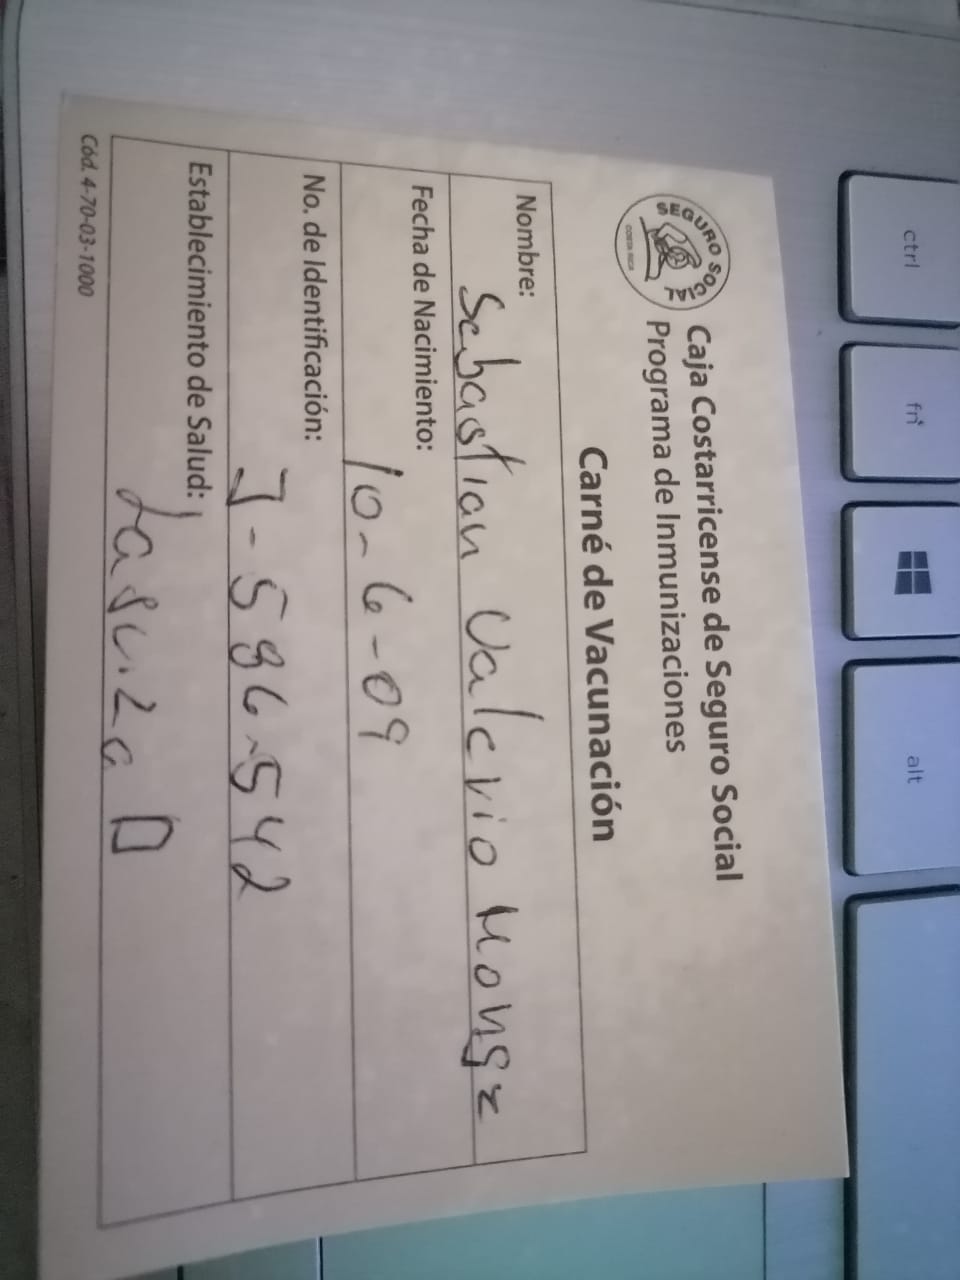 SEGURO SOCIAL
COSTA RICA
Caja Costarricense de Seguro Social
Programa de Inmunizaciones
Carné de Vacunación
Nombre: Sebastian Valcrio Monge
Fecha de Nacimiento: 10-6-09
No. de Identificación: 3-596-542
Establecimiento de Salud: La Suiza D
Cód. 4-70-03-1000
ctrl
fn
alt